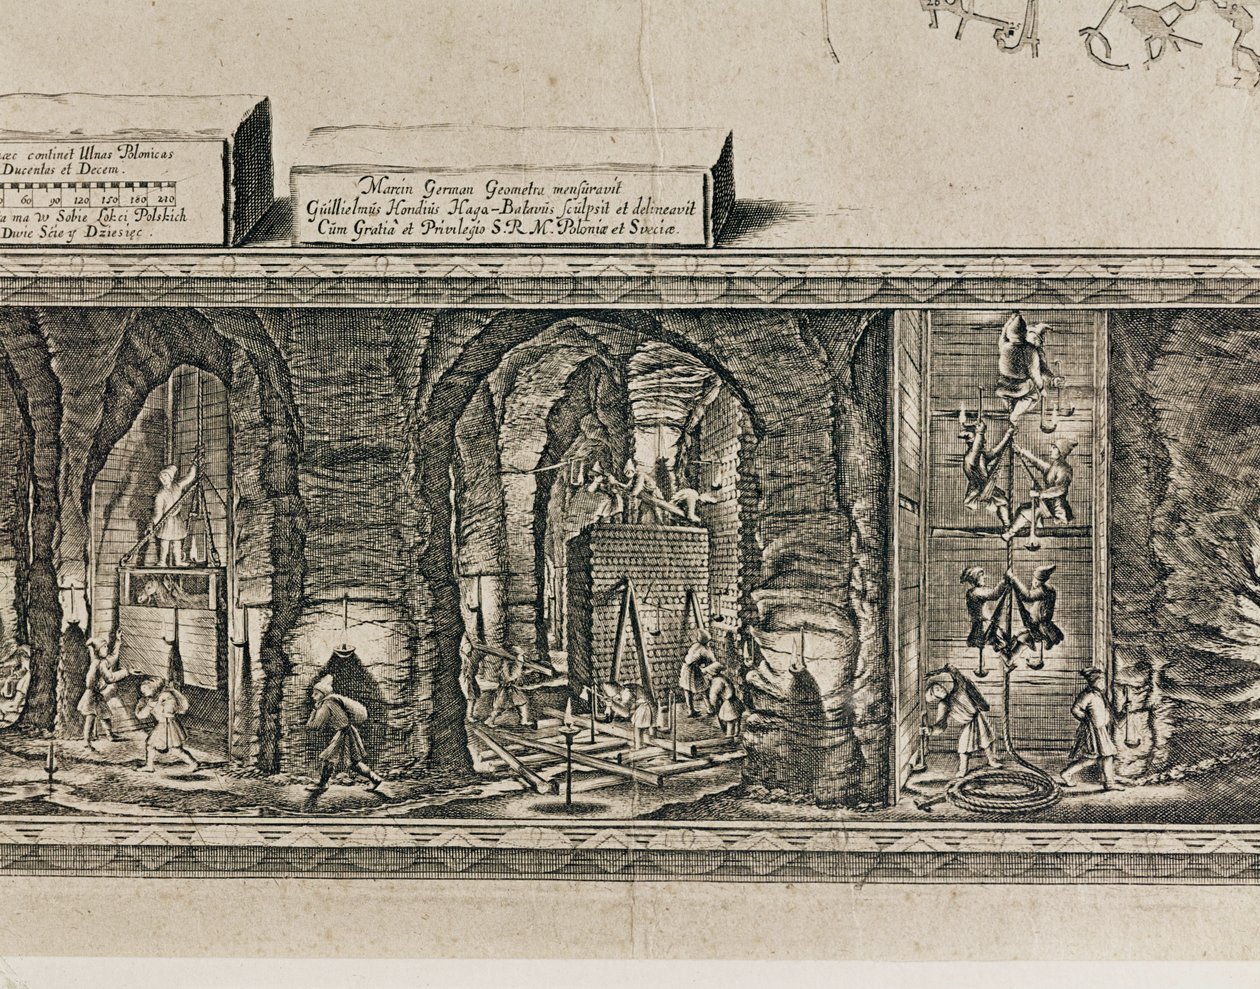 continet Ulnas Polonicas
Ducentas et Decem.
60 90 120 150 180 210
ma w Sobie Łokci Polskich
Dwie Scie y Dziesięc.
Marcin German Geometra mensuravit
Guillielmus Hondius Haga-Batavus sculpsit et delineavit
Cum Gratia et Privilegio S. R. M. Poloniæ et Sveciæ.
7